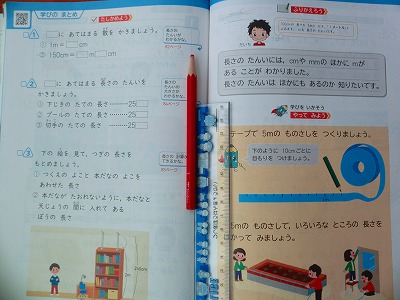 学びの まとめ
たしかめよう
1 □に あてはまる 数を かきましょう。
① 1m=□cm
② 150cm=□m□cm
長さの
たんいが
わかるかな。
2 □に あてはまる 長さの たんいを
かきましょう。
① 下じきの たての 長さ……25□
② プールの たての 長さ……25□
③ 切手の たての 長さ……25□
3 下の 絵を 見て、つぎの 長さを
もとめましょう。
① つくえの よこと 本だなの よこを
あわせた 長さ
② 本だなが たおれないように、本だなと
天じょうの 間に 入れて ある
ぼうの 長さ
ふりかえろう
だいち
長さの たんいには、cmや mmの ほかに mが
ある ことが わかりました。
長さの たんいは ほかにも あるのか 知りたいです。
学びを いかそう
やって みよう
テープで 5mの ものさしを つくりましょう。
下のように 10cmごとに
目もりを つけましょう。
5mの ものさしで、いろいろな ところの 長さを
はかって みましょう。